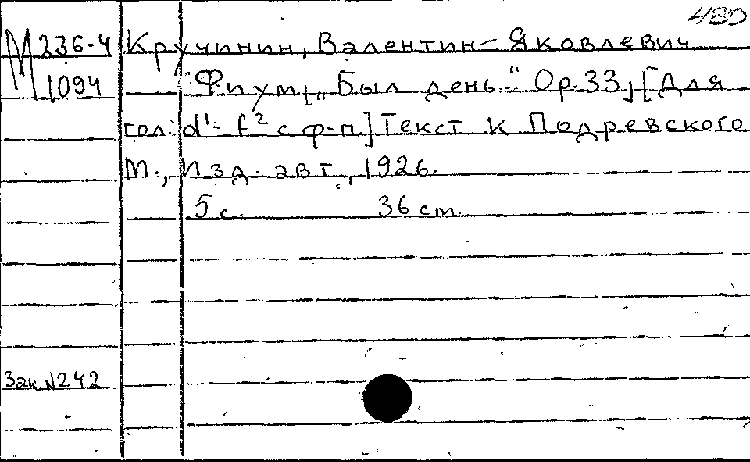 480
М 236-4 Кручинин, Валентин Яковлевич
М 1094 "Фиум, „Был день." Op. 33, [Для
гол. d¹-f² с ф-п.] Текст К Подревского
М., Изд. авт., 1926.
5 с. 36 cm.
Зак №242